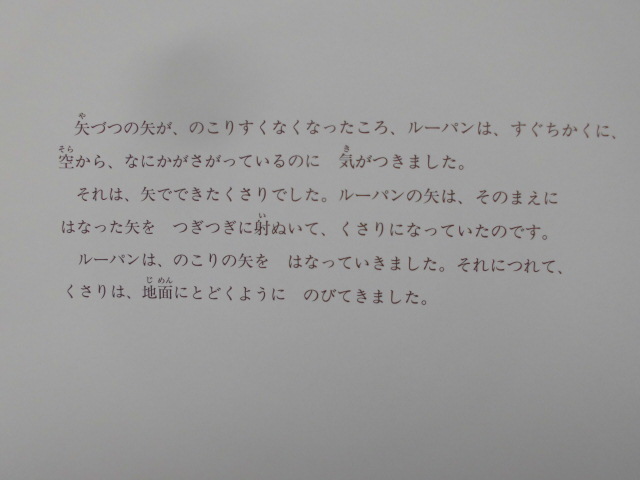 矢づつの矢が、のこりすくなくなったころ、ルーパンは、すぐちかくに、
空から、なにかがさがっているのに　気がつきました。
それは、矢でできたくさりでした。ルーパンの矢は、そのまえに
はなった矢を　つぎつぎに射ぬいて、くさりになっていたのです。
ルーパンは、のこりの矢を　はなっていきました。それにつれて、
くさりは、地面にとどくように　のびてきました。